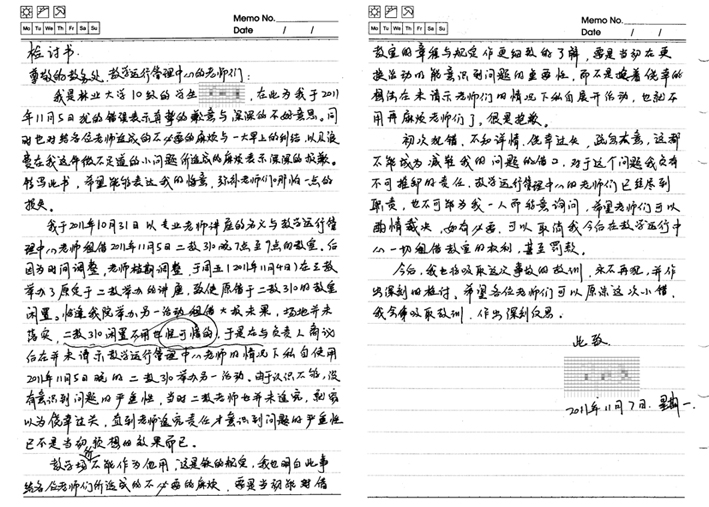 Memo No.
Mo Tu We Th Fr Sa Su
Date / /
检讨书
尊敬的教务处、教学运行管理中心的老师们:
我是林业大学10级的学生,在此为我于2011
年11月5日犯的错误表示真挚的歉意与深深的不好意思。同
时也对给各位老师造成的不必要的麻烦与一大早上的纠结,以及浪
费在我这件微不足道的小问题所造成的麻烦表示深深的致歉。
特写此书,希望能够表达我的悔意,弥补老师们哪怕一点的
损失。
我于2011年10月31日以专业老师讲座的名义与教学运行管
理中心老师租借2011年11月5日二教310晚7点至9点的教室。后
因为时间调整,老师档期调整,于周五(2011年11月4日)在三教
举办了原定于二教举办的讲座,致使原借于二教310的教室
闲置。恰逢我院举办另一活动租借大教未果,场地并未
落实,二教310闲置不用也怪可惜的,于是在与负责人商议
后在并未请示教学运行管理中心老师的情况下私自使用
2011年11月5日晚的二教310举办另一活动。由于认识不够,没
有意识到问题的严重性,当时二教老师也并未追究,就蒙
以为侥幸过关,直到老师追究责任才意识到问题的严重性
已不是当初软想的效果而已。
教学场所不能作为他用,这是铁的规定,我也明白此事
给各位老师们所造成的不必要的麻烦,要是当初能对借
Memo No.
Mo Tu We Th Fr Sa Su
Date / /
教室的章程与规定作更细致的了解,要是当初在更
换活动时能意识到问题的重要性,而不是抱着侥幸的
想法在未请示老师们的情况下私自展开活动,也就不
用再麻烦老师们了。很是抱歉。
初次犯错、不知详情、侥幸过头、疏忽大意,这都
不能成为减轻我的问题的借口,对于这个问题我负有
不可推卸的责任。教学运行管理中心的老师们已经尽到
职责,也不可能为我一人而特意询问,希望老师们可以
酌情裁决,如有必要,可以取消我今后在教学运行中
心一切租借教室的权利,甚至罚款。
今后,我也将吸取这次事故的教训,永不再犯,并作
出深刻的检讨。希望各位老师们可以原谅这次小错,
我会牢吸取教训,作出深刻反思。
此致
2011年11月7日.星期一.